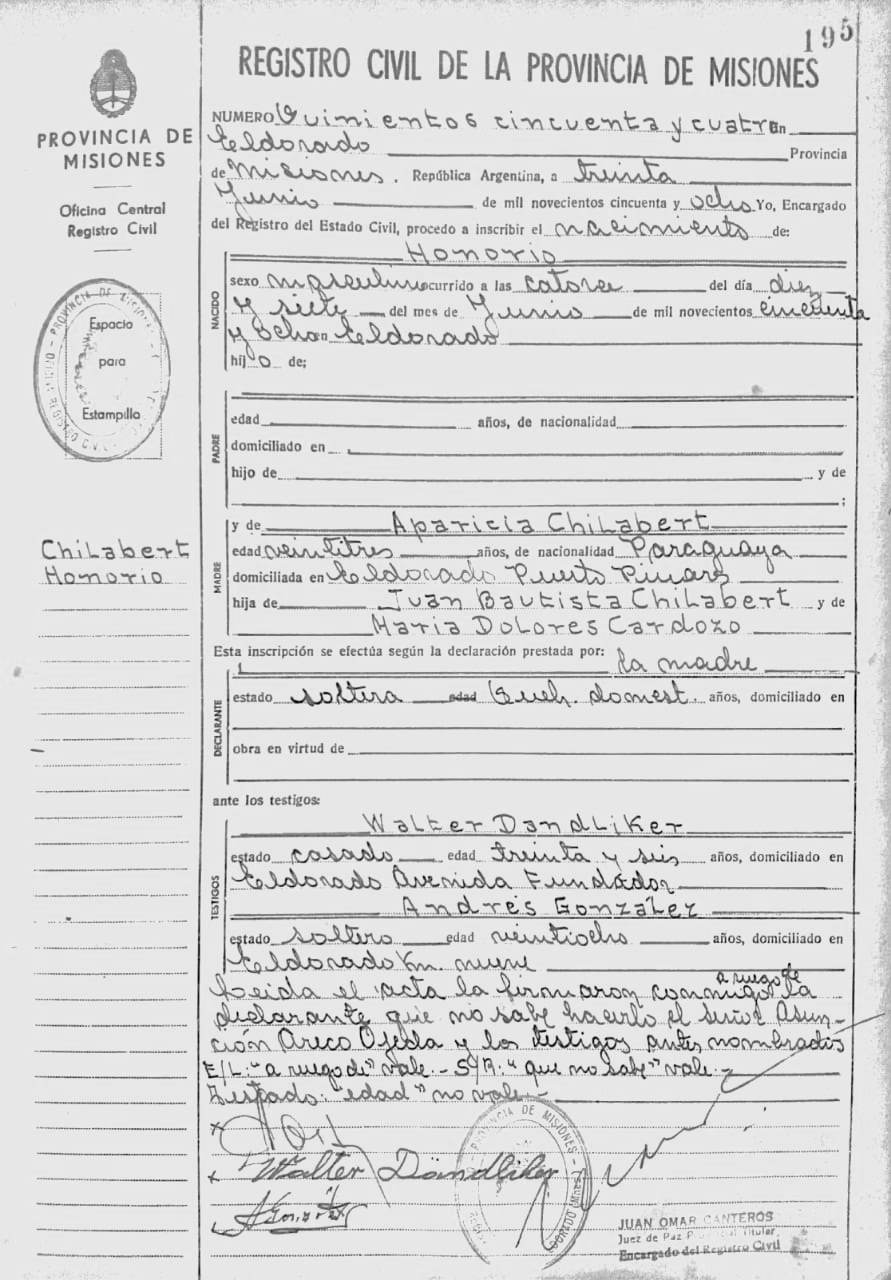 195
REGISTRO CIVIL DE LA PROVINCIA DE MISIONES
PROVINCIA DE
MISIONES
Oficina Central
Registro Civil
Espacio
para
Estampilla
Chilabert
Honorio
NUMERO Quinientos cincuenta y cuatro En
Eldorado Provincia
de Misiones. República Argentina, a treinta
Junio de mil novecientos cincuenta y ocho Yo, Encargado
del Registro del Estado Civil, procedo a inscribir el nacimiento de:
Honorio
NACIDO
sexo masculino ocurrido a las catorce del día diez
y siete del mes de Junio de mil novecientos cincuenta
y ocho en Eldorado
hijo de;
PADRE
edad años, de nacionalidad
domiciliado en
hijo de y de
;
MADRE
y de Aparicia Chilabert
edad veintitres años, de nacionalidad Paraguaya
domiciliada en Eldorado Puerto Pinares
hija de Juan Bautista Chilabert y de
Maria Dolores Cardozo
Esta inscripción se efectúa según la declaración prestada por:
la madre
DECLARANTE
estado soltera edad Queh. domest. años, domiciliado en
obra en virtud de
ante los testigos:
TESTIGOS
Walter Dandliker
estado casado edad treinta y seis años, domiciliado en
Eldorado Avenida Fundador
Andrés Gonzalez
estado soltero edad veintiocho años, domiciliado en
Eldorado Km. nueve
Leida el acta la firmaron conmigo a ruego de la
declarante que no sabe hacerlo el señor Asun-
ción Areco Ojeda y los testigos antes nombrados
E/L: "a ruego de" vale.- S/R: "que no sabe" vale.-
Testado: "edad" no vale.-
Walter Dändliker
JUAN OMAR CANTEROS
Juez de Paz Provincial Titular
Encargado del Registro Civil